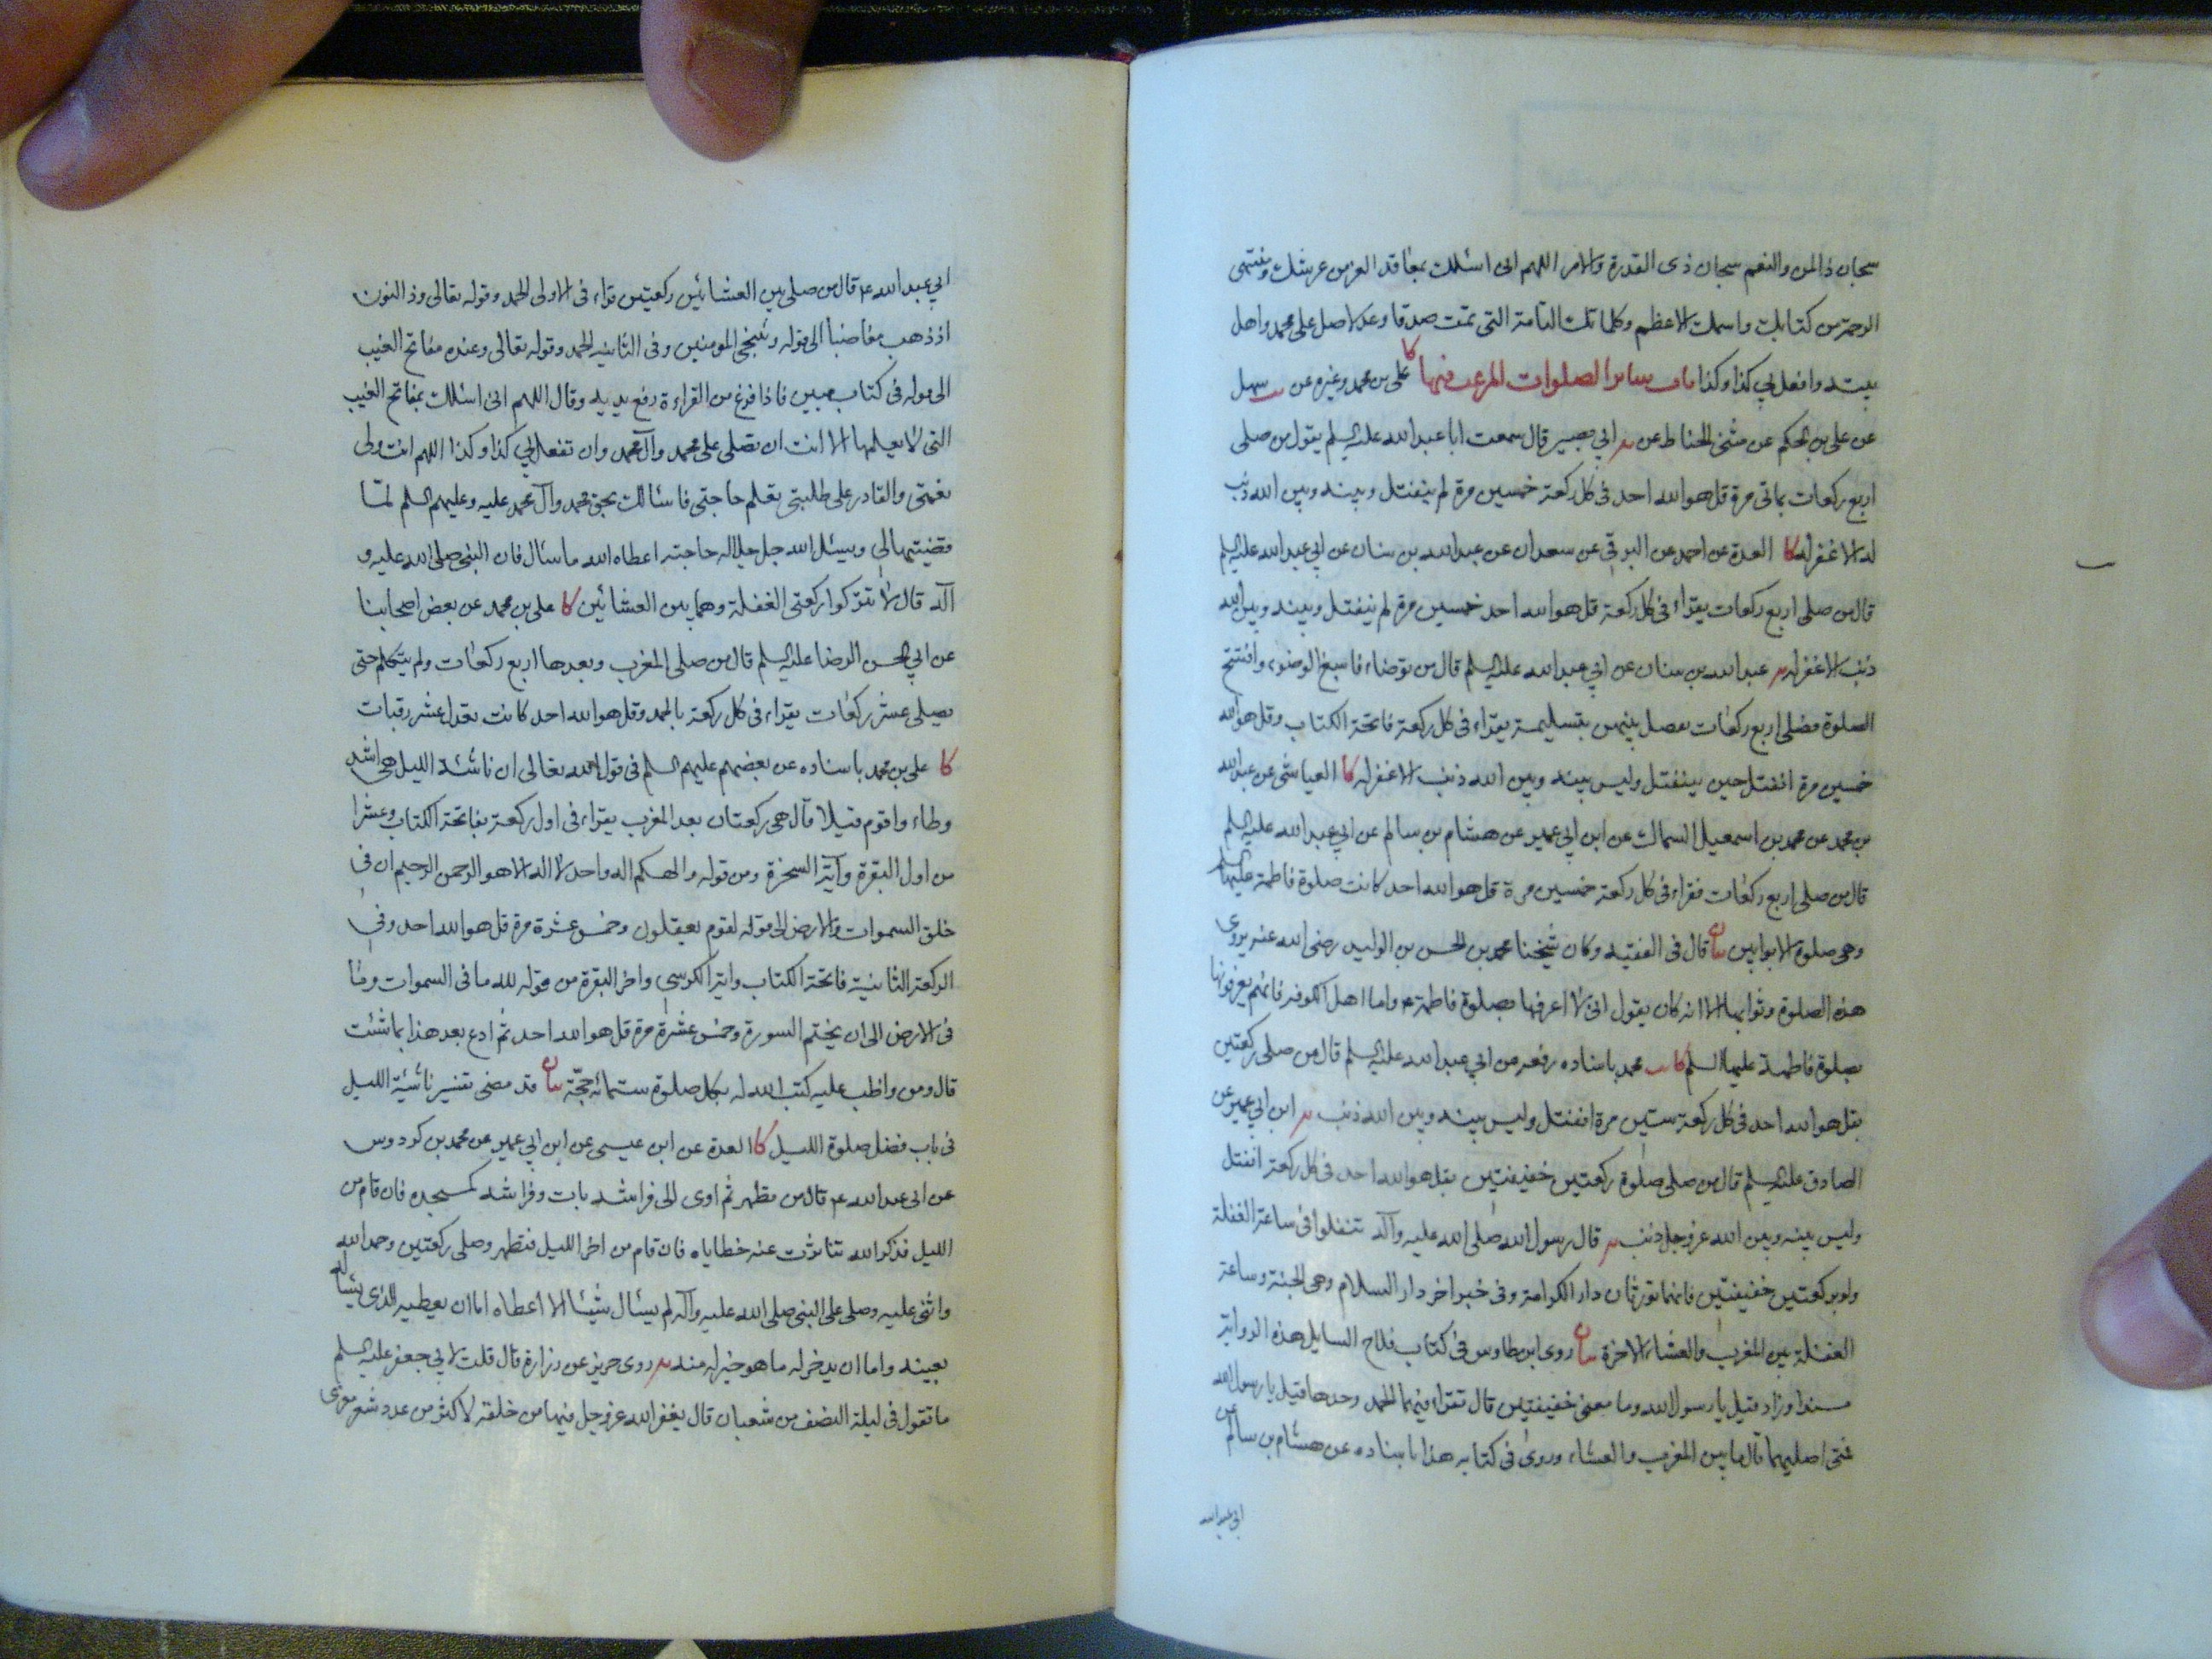 سبحان ذالمن والنعم سبحان ذى القدرة والامر اللهم انى اسئلك بمعاقد العز من عرشك ومنتهى
الرحمة من كتابك واسمك الاعظم وكلماتك التامة التى تمت صدقا وعدلا صل على محمد واهل
بيته وافعل بي كذا وكذا باب سائر الصلوات المرعب فيها كا على بن محمد وغيره عن سهل
عن على بن الحكم عن مثنى الحناط عن ابي بصير قال سمعت ابا عبدالله عليه السلم يقول من صلى
اربع ركعات بمائى مرة قل هو الله احد فى كل ركعة خمسين مرة لم ينفتل وبينه وبين الله ذنب
له الا غفر له كا العدة عن احمد عن البرقى عن سعدان عن عبدالله بن سنان عن ابي عبدالله عليه السلم
قال من صلى اربع ركعات يقراء فى كل ركعة قل هو الله احد خمسين مرة لم ينفتل وبينه وبين الله
ذنب الا غفر له يه عبدالله بن سنان عن ابي عبدالله عليه السلم قال من توضاء فاسبغ الوضوء وافتتح
الصلوة فصلى اربع ركعات يفصل بينهن بتسليمة يقراء فى كل ركعة فاتحة الكتاب وقل هو الله
خمسين مرة انفتل حين ينفتل وليس بينه وبين الله ذنب الا غفر له كا العياشى عن عبدالله
بن محمد عن محمد بن اسمعيل السماك عن ابن ابي عمير عن هشام بن سالم عن ابي عبدالله عليه السلم
قال من صلى اربع ركعات فقراء فى كل ركعة خمسين مرة قل هو الله احد كانت صلوة فاطمة عليها السلم
وهى صلوة الاوابين بيان قال فى الفقيه وكان شيخنا محمد بن الحسن بن الوليد رضى الله عنه يروى
هذه الصلوة وثوابها الا انه كان يقول انى لا اعرفها بصلوة فاطمة ع واما اهل الكوفه فانهم يعرفونها
بصلوة فاطمة عليها السلم كا محمد باسناده رفعه من ابي عبدالله عليه السلم قال من صلى ركعتين
بقل هو الله احد فى كل ركعة ستين مرة انفتل وليس بينه وبين الله ذنب يه ابن ابي عمير عن
الصادق عليه السلم قال من صلى صلوة ركعتين خفيفتين بقل هو الله احد فى كل ركعة انفتل
وليس بينه وبين الله عز وجل ذنب يه قال رسول الله صلى الله عليه وآله تنفلوا فى ساعة الغفلة
ولو بركعتين خفيفتين فانهما تورثان دار الكرامة وفى خبر اخر دار السلام وهى الجنة وساعة
الغفلة بين المغرب والعشاء الاخرة بيان روى ابن طاوس فى كتاب فلاح السايل هذه الرواية
مسندا وزاد فقيل يا رسول الله وما معنى خفيفتين قال تقراء فيهما الحمد وحدها فقيل يا رسول الله
فمتى اصليهما قال ما بين المغرب والعشاء وروى فى كتابه هذا باسناده عن هشام بن سالم عن
ابي عبدالله
ابي عبدالله ع قال من صلى بين العشائين ركعتين قراء فى الاولى الحمد وقوله تعالى وذ النون
اذ ذهب مغاضبا الى قوله وننجى المومنين وفى الثانيه الحمد وقوله تعالى وعنده مفاتح الغيب
الى قوله فى كتاب مبين فاذا فرغ من القراءة رفع يديه وقال اللهم انى اسئلك بمفاتح الغيب
التى لا يعلمها الا انت ان تصلى على محمد وآل محمد وان تفعل بي كذا وكذا اللهم انت ولى
نعمتى والقادر على طلبتى تعلم حاجتى فاسئالك بحق محمد وآل محمد عليه وعليهم السلم لمّا
قضيتها لي ويسئل الله جل جلاله حاجته اعطاه الله ما سئال فان النبى صلى الله عليه و
آله قال لا تتركوا ركعتى الغفلة وهما بين العشائين كا على بن محمد عن بعض اصحابنا
عن ابي الحسن الرضا عليه السلم قال من صلى المغرب وبعدها اربع ركعات ولم يتكلم حتى
يصلى عشر ركعات يقراء فى كل ركعة بالحمد وقل هو الله احد كانت تعدل عشر رقبات
كا على بن محمد باسناده عن بعضهم عليهم السلم فى قول الله تعالى ان ناشئة الليل هى اشد
وطاء واقوم قيلا قال هى ركعتان بعد المغرب يقراء فى اول ركعة بفاتحة الكتاب وعشرا
من اول البقرة وآية السخرة ومن قوله والهكم اله واحد لا اله الا هو الرحمن الرحيم ان فى
خلق السموات والارض الى قوله لقوم يعقلون وخمس عشرة مرة قل هو الله احد وفى
الركعة الثانية فاتحة الكتاب واية الكرسي واخر البقرة من قوله لله ما فى السموات وما
فى الارض الى ان يختم السورة وخمس عشرة مرة قل هو الله احد ثم ادع بعد هذا بما شئت
قال ومن واظب عليه كتب الله له بكل صلوة ستمائة حجّة بيان قد مضى تفسير ناشئة الليل
فى باب فضل صلوة الليل كا العدة عن ابن عيسى عن ابن ابي عمير عن محمد بن كردوس
عن ابى عبدالله ع قال من تطهر ثم اوى الى فراشه بات وفراشه كمسجده فان قام من
الليل فذكر الله تناثرت عنه خطاياه فان قام من اخر الليل فتطهر وصلى ركعتين وحمد الله
واثنى عليه وصلى على النبى صلى الله عليه وآله لم يسئال شيئا الا اعطاه اما ان يعطيه الذى يسئاله
بعينه واما ان يدخر له ما هو خير له منه يه روى حريز عن زرارة قال قلت لابي جعفر عليه السلم
ما تقول فى ليلة النصف من شعبان قال يغفر الله عز وجل فيها من خلقه لاكثر من عدد شعر معزى